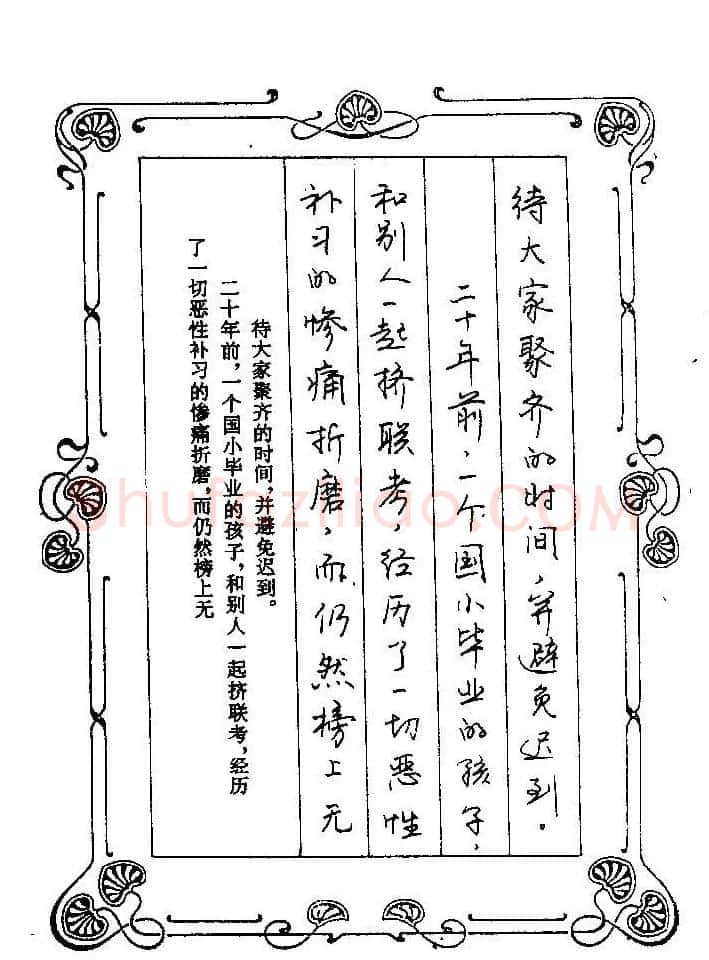 待大家聚齐的时间，并避免迟到。
二十年前，一个国小毕业的孩子，
和别人一起挤联考，经历了一切恶性
补习的惨痛折磨，而仍然榜上无
待大家聚齐的时间，并避免迟到。
二十年前，一个国小毕业的孩子，和别人一起挤联考，经历
了一切恶性补习的惨痛折磨，而仍然榜上无
shufaziliao.COM